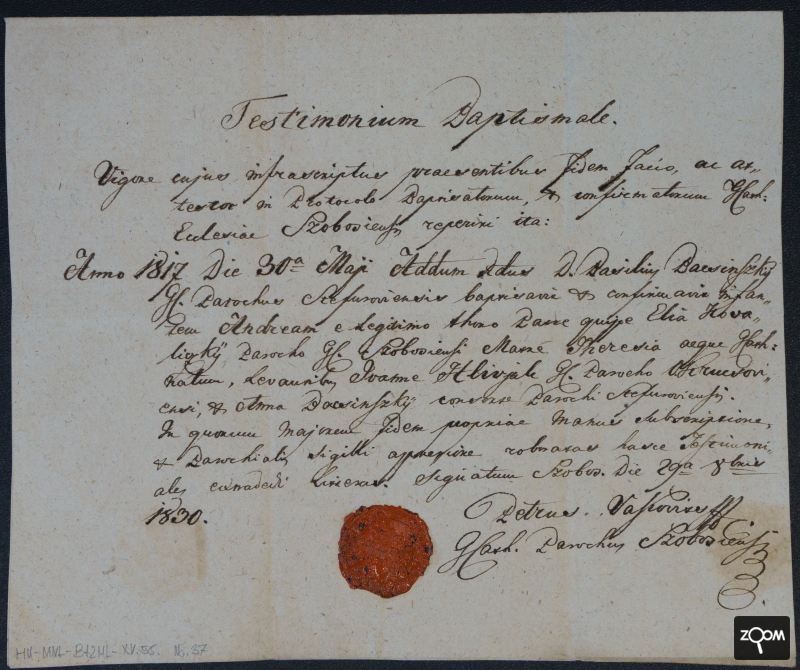 Testimonium Baptismale.
Vigore cujus infrascriptus praesentibus fidem facio, ac at„
testor in Protocolo Baptisatorum, & confirmatorum Gcath:
Eclesiae Szobosiensis reperiri ita:
Anno 1817 Die 30a Maji Addum Rdus D. Basilius Bacsinszky
G. Parochus baptisavit & confirmavit infan„
tem Andream e legitimo thoro Patre quipe Elia Kova„
liczkij Parocho G. Szobosiensi Matre Theresia aeque Gcath:
natum, Levantibus Joanne Hlivjak G. Parocho
ensi, & Anna Bacsinszky consorte Parochi
In quorum majorem fidem propriae manus subscriptione,
& Parochialis Sigilli apresione roboratas hasce Testimoni„
ales extradedi Literas. Signatum Szobos. Die 29a 8bris
1830.
Petrus
Gcath. Parochus Szobosiensis
HU-MNL-BAZML-XV.55. No. 37
ZOOM